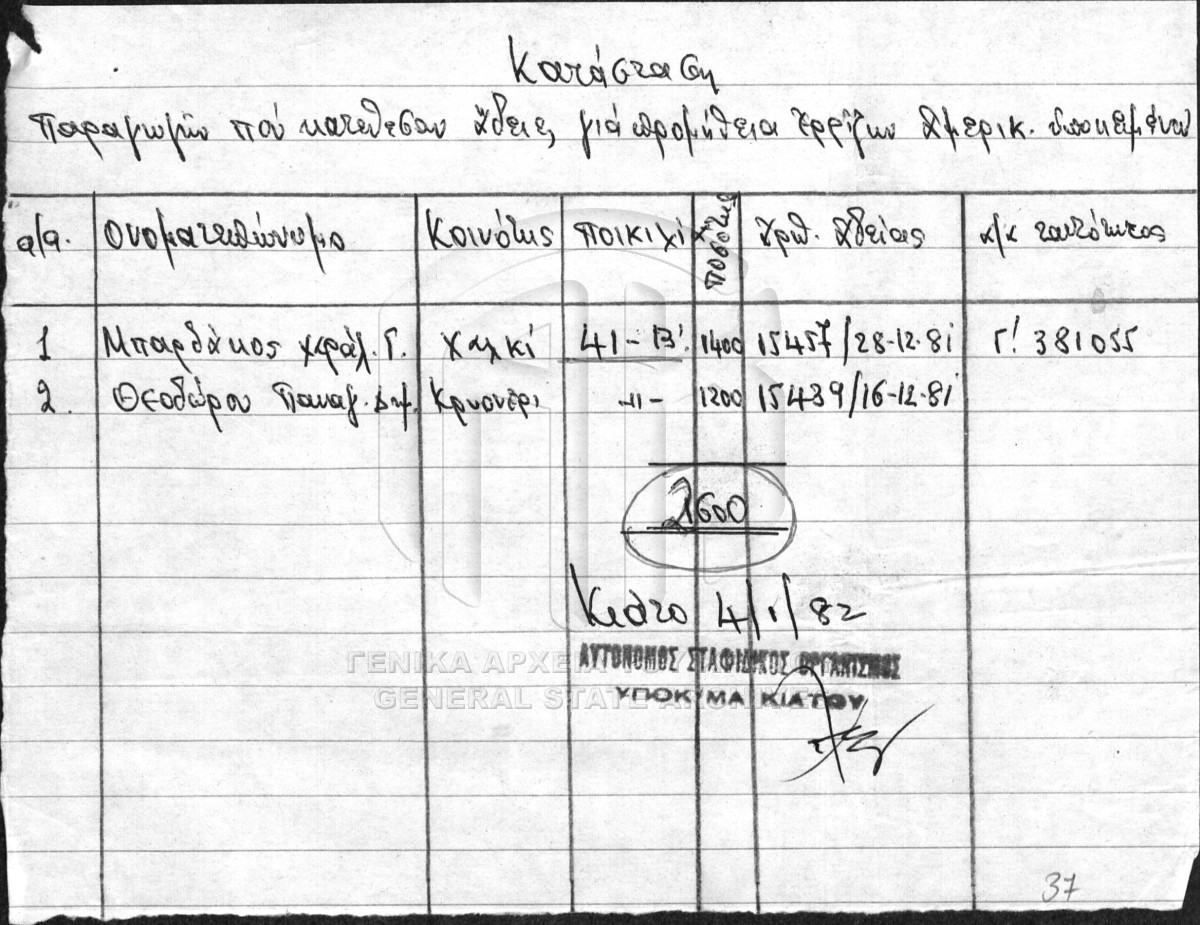 Κατάσταση
Παραγωγών πού κατέθεσαν άδειες γιά προμήθεια έρριζων Αμερικ. υποκειμένων
α/α. Ονοματεπώνυμο Κοινότης ποικιλί ποσότης Αριθ. Αδείας α/α ταυτότητος
1 Μπαρδάκος Χαράλ. Γ. Χαλκί 41-Β'. 1400 15457/28-12-81 Γ! 381055
2. Θεοδώρου Παναγ. Δημ. Κρυονέρι -"- 1200 15439/16-12-81
2600
Κιάτο 4/1/82
ΑΥΤΟΝΟΜΟΣ ΣΤΑΦΙΔΙΚΟΣ ΟΡΓΑΝΙΣΜΟΣ
ΥΠΟΚ/ΜΑ ΚΙΑΤΟΥ
ΓΕΝΙΚΑ ΑΡΧΕΙΑ
GENERAL STATE
37